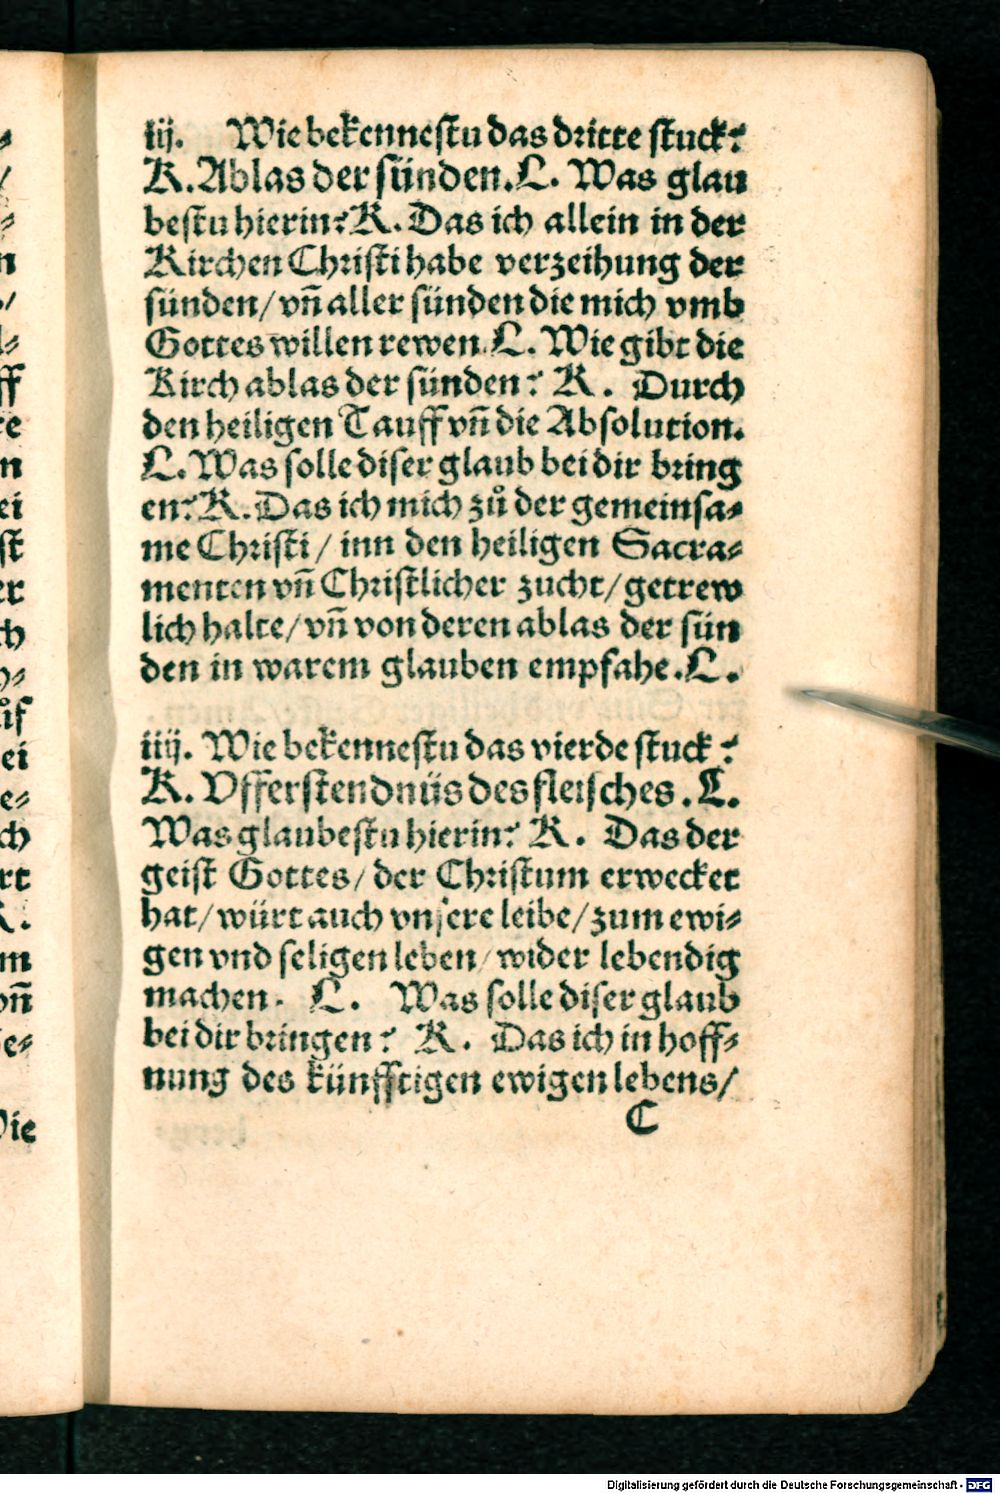 iij. Wie bekennestu das dritte stuck?
K. Ablas der sünden. L. Was glau
bestu hierin? K. Das ich allein in der
Kirchen Christi habe verzeihung der
sünden/ vñ aller sünden die mich vmb
Gottes willen rewen. L. Wie gibt die
Kirch ablas der sünden? K. Durch
den heiligen Tauff vñ die Absolution.
L. Was solle diser glaub bei dir bring
en? K. Das ich mich zů der gemeinsa⸗
me Christi/ inn den heiligen Sacra⸗
menten vñ Christlicher zucht/ getrew
lich halte/ vñ von deren ablas der sün
den in warem glauben empfahe. L.
iiij. Wie bekennestu das vierde stuck?
K. Vfferstendnüs des fleisches. L.
Was glaubestu hierin? K. Das der
geist Gottes/ der Christum erwecket
hat/ würt auch vnsere leibe/ zum ewi⸗
gen vnd seligen leben/ wider lebendig
machen. L. Was solle diser glaub
bei dir bringen? K. Das ich in hoff⸗
nung des künfftigen ewigen lebens/
C
Digitalisierung gefördert durch die Deutsche Forschungsgemeinschaft - DFG